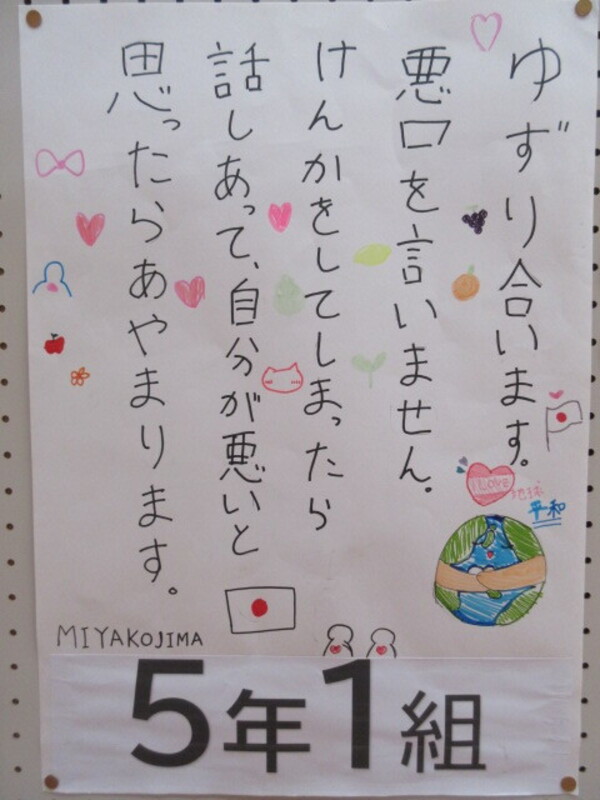 ゆずり合います。
悪口を言いません。
けんかをしてしまったら
話しあって、自分が悪いと
思ったらあやまります。
I LOVE
地球
平和
MIYAKOJIMA
5年1組